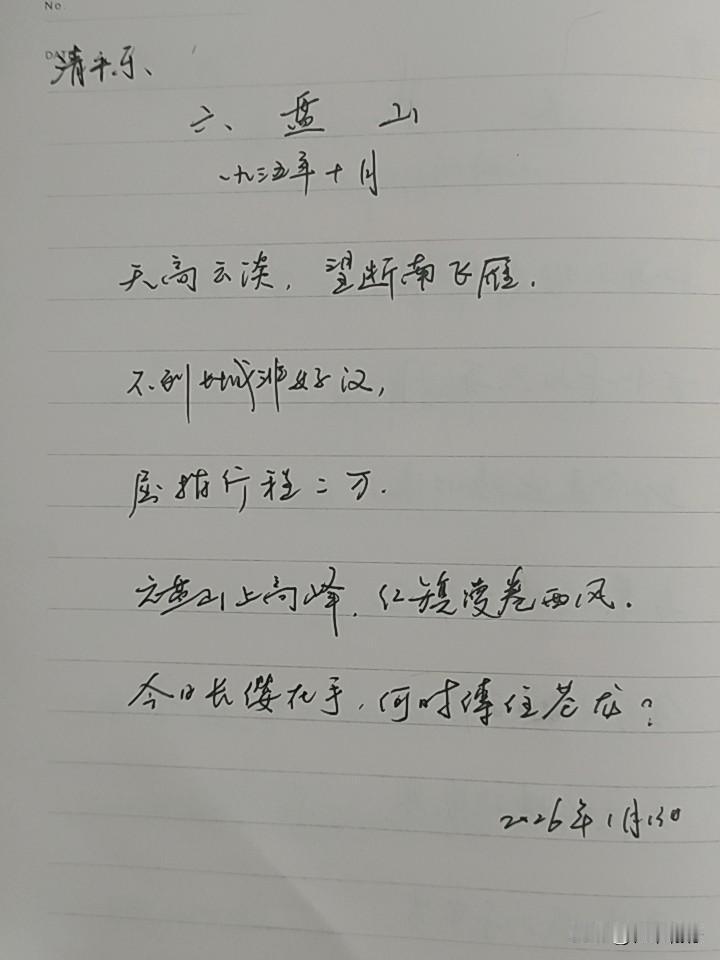 No.
DATE
清平乐、
六、盘山
一九三五年十月
天高云淡，望断南飞雁.
不到长城非好汉，
屈指行程二万.
六盘山上高峰，红旗漫卷西风.
今日长缨在手，何时缚住苍龙？
2026年1月13日